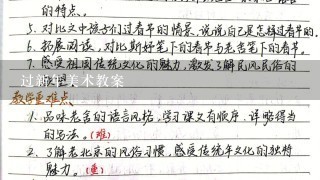 的特点。
5. 对比文中孩子们过春节的情景,说说自己是怎样过春节的。
6. 拓展阅读,对比斯妤笔下的春节与老舍笔下的春节。
7. 感受祖国传统文化的魅力,激发了解民风民俗的
过新年美术教案
教学重难点
1. 品味老舍的语言风格,学习课文有顺序、详略得当
的写法。(难)
2. 了解老北京的风俗习惯,感受传统年文化的独特
魅力。(重)